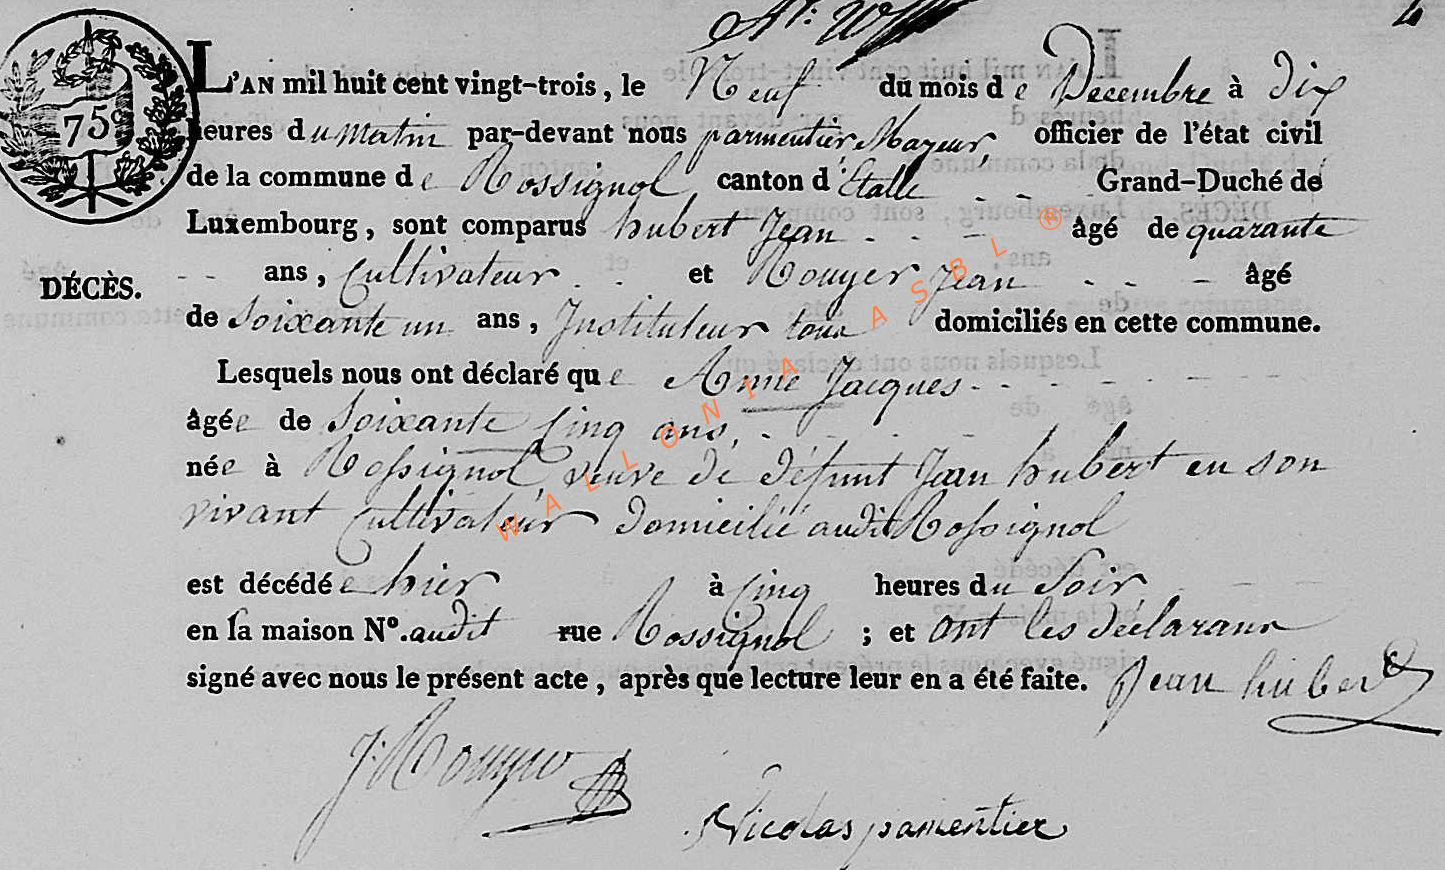 75c
L'AN mil huit cent vingt-trois, le Neuf du mois de Decembre à dix
heures du matin par-devant nous parmentier Mayeur, officier de l'état civil
de la commune de Rossignol canton d'Etalle Grand-Duché de
Luxembourg, sont comparus hubert Jean âgé de quarante
ans, Cultivateur et Rouyer Jean âgé
DÉCÈS.
de Soixante un ans, Instituteur tous domiciliés en cette commune.
Lesquels nous ont déclaré que Anne Jacques
âgée de Soixante Cinq ans,
née à Rossignol veuve de défunt Jean hubert en son
vivant Cultivateur domicilié audit Rossignol
est décédée hier à Cinq heures du Soir
en sa maison N°. audit rue Rossignol ; et ont les déclarans
signé avec nous le présent acte, après que lecture leur en a été faite. Jean hubert
J: Rouyer
Nicolas parmentier
WALLONIA ASBL ®